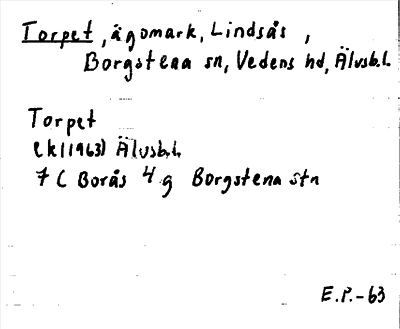 Torpet, ägomark, Lindsås,
Borgstena sn, Vedens hd, Älvsb.l.
Torpet
Ek(1963) Älvsb.l.
7 C Borås 4 g Borgstena stn
E.P.-63